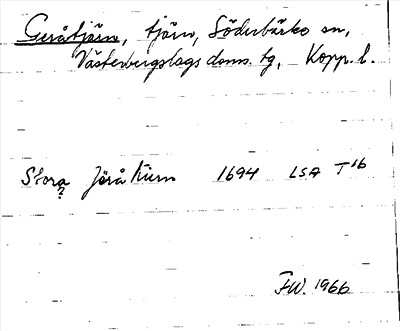 Geråtjärn, tjärn, Söderbärke sn,
Västerbergslags doms. tg, Kopp. l.
Stora Järå Kiern 1694 LSA T16
?
FW. 1966